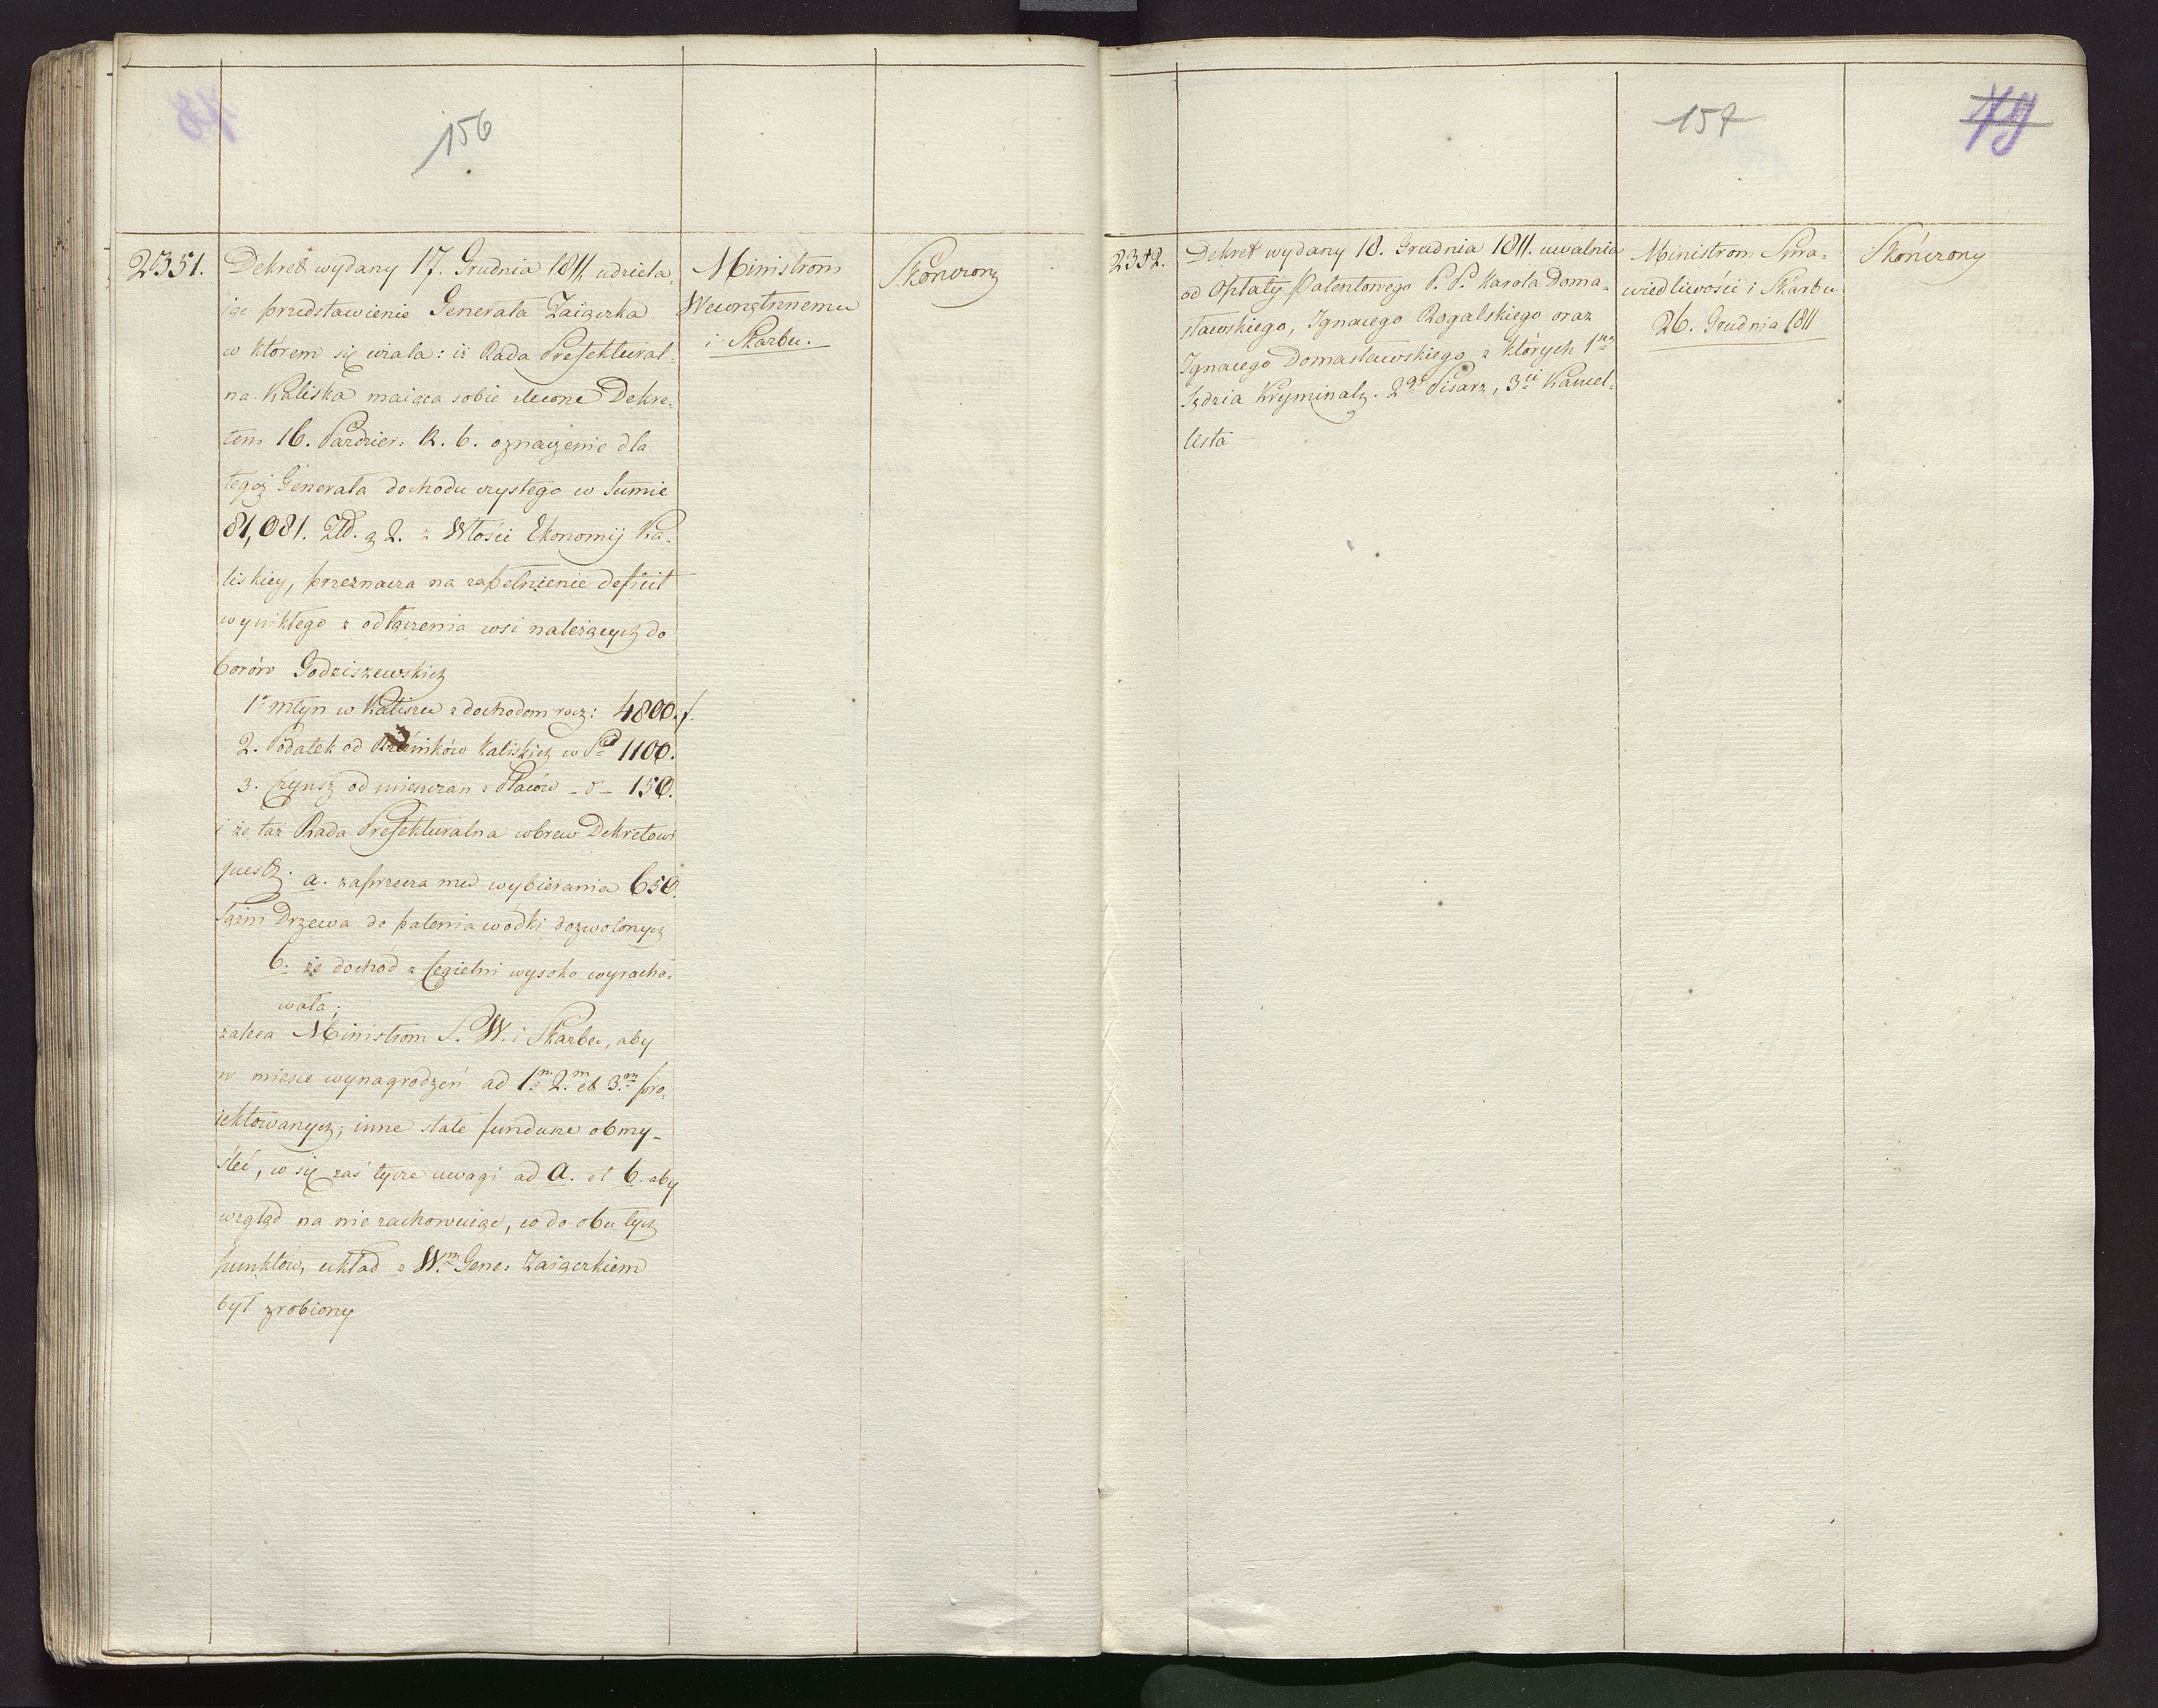 156
2351.
Dekret wydany 17. Grudnia 1811 udziela
iąc przedstawienie Generała Zaiączka
w którem się użala: iż Rada Prefektural-
na Kaliska maiąca sobie zlecone Dekre-
tem 16. Paździer: R. b. oznaczenie dla
tegoż Generała dochodu czystego w Summie
81,081. Złł. g 2. z Włości Ekonomij Ka-
liskiey, przeznacza na zapełnienie deficit
wynikłego z odłączenia wsi należących do
borów Godziszewskich
1° młyn w Kaliszu z dochodem rocz: 4800. f.
2. Podatek od Rzeźników Kaliskich w 1100.
3. Czynsz od mieszczan z Placów - 150.
i że taż Rada Prefekturalna wbrew Dekretowi
a. zaprzecza mu wybierania 650.
sążni Drzewa do palenia wódki dozwolonych
b. że dochód z Cegielni wysoko wyracho-
wała;
zaleca Ministrom S. W. i Skarbu, aby
w miejsce wynagrodzeń ad 1m 2.m et 3.m pro-
iektowanych; inne stałe fundusze obmy-
śleć, co się zaś tycze uwagi ad a. et b. aby
wzgląd na nie zachowuiąc, co do obu tych
punktów, układ z W.m Gene: Zaiączkiem
był zrobiony
Ministrom
Wewnętrznemu
i Skarbu.
Skończony
157
79
2352.
Dekret wydany 18. Grudnia 1811. uwalnia
od Opłaty Patentowego P. P. Karola Doma-
sławskiego, Ignacego Rogalskiego oraz
Ignacego Domasławskiego z których 1szy
Sędzia Kryminaln. 2gi Pisarz, 3ci Kancel-
lista
Ministrom Spra-
wiedliwości i Skarbu
26. Grudnia 1811
Skończony